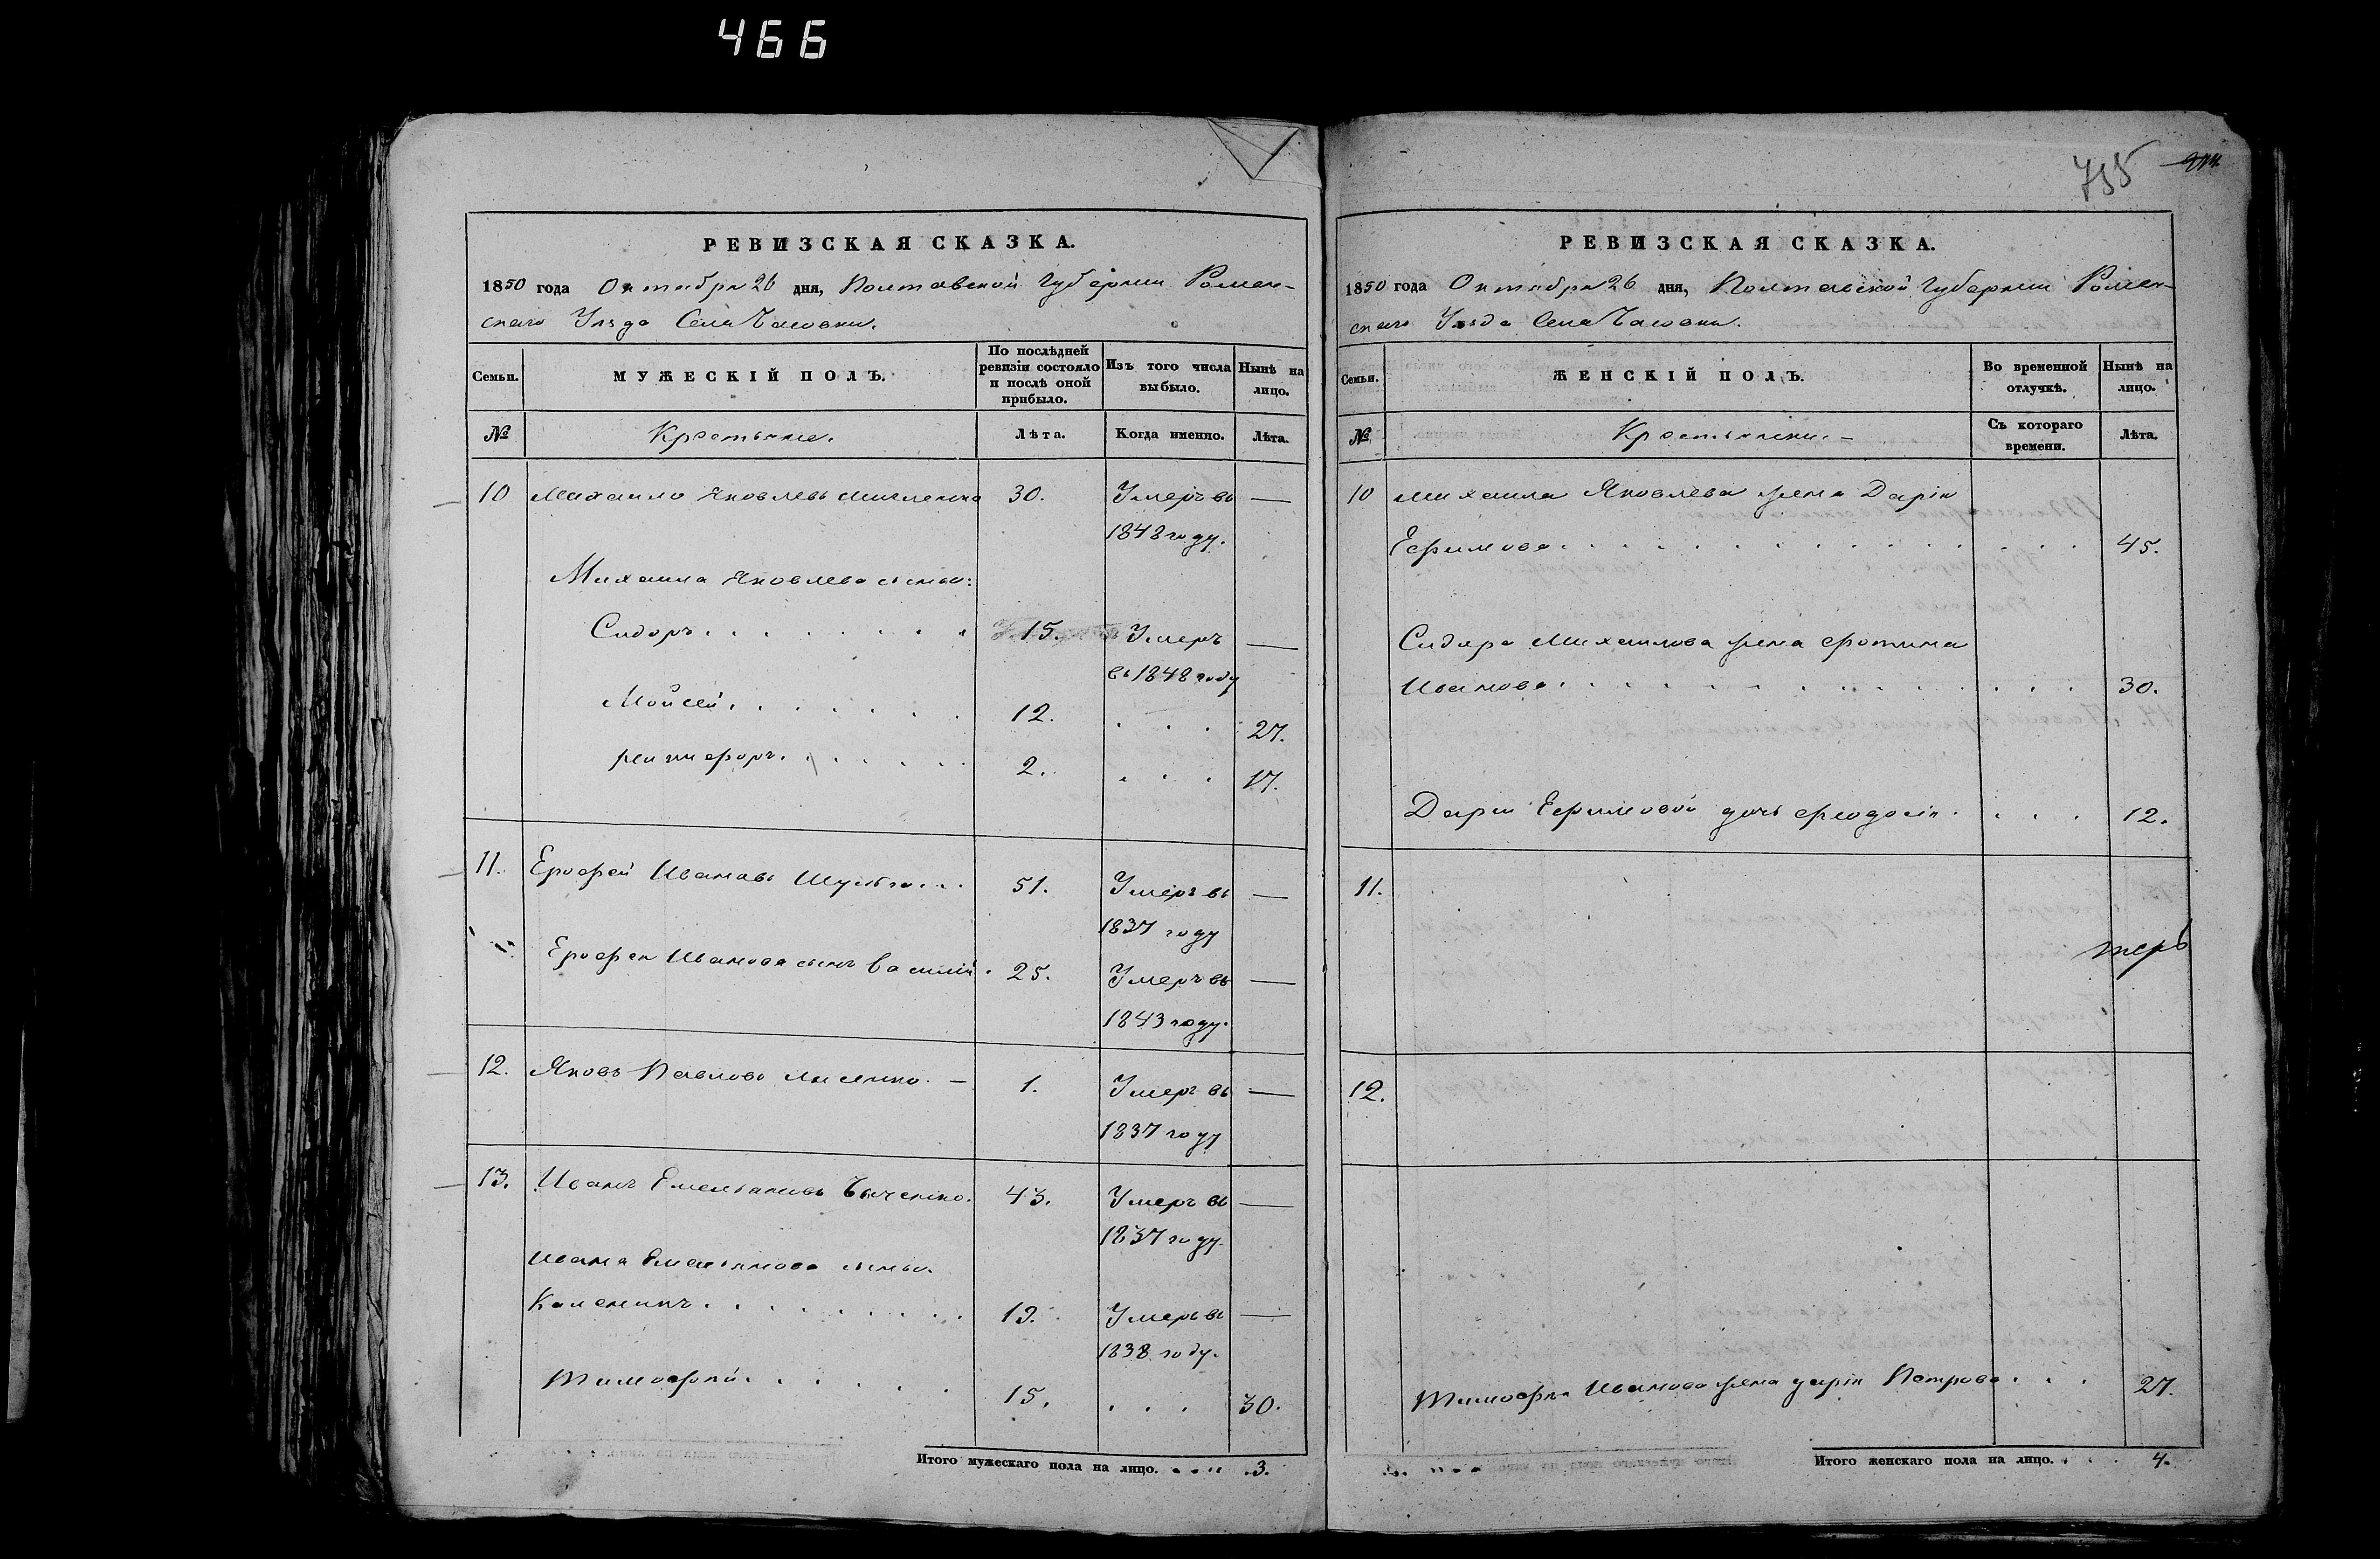 466
735
РЕВИЗСКАЯ СКАЗКА.
1850 года Октября 26 дня, Полтавской Губернии Ромен-
скаго Уезда Села
Семьи.
МУЖЕСКІЙ ПОЛЪ.
По послѣдней ревизіи состояло и послѣ оной прибыло.
Изъ того числа выбыло.
Нынѣ на лицо.
№
Крестьяне.
Лѣта.
Когда именно.
Лѣта.
10 Михаило Яковлевъ 30. Умеръ въ —
1848 году.
Михаила Яковлева сыны:
Сидоръ 15. Умеръ —
въ 1848 году
Мойсей 12. 27.
2. 17.
11. Ерофей Ивановъ 51. Умеръ въ —
1837 году
Ерофея Иванова сынъ Василій 25. Умеръ въ —
1843 году.
12. Яковъ Павловъ Лисенко. — 1. Умеръ въ —
1837 году
13. Иванъ Емельяновъ 43. Умеръ въ —
1837 году.
Ивана Емельянова сыны.
13. Умеръ въ —
1838 году.
Тимофей 15. 30.
Итого мужескаго пола на лицо. 3.
РЕВИЗСКАЯ СКАЗКА.
1850 года Октября 26 дня, Полтавской Губернии Ромен-
скаго Уезда Села
Семьи.
ЖЕНСКІЙ ПОЛЪ.
Во временной отлучкѣ.
Нынѣ на лицо.
№
Крестьянки. —
Съ котораго времени.
Лѣта.
10 Михаила Яковлева жена Дарія
Ефимова 45.
Сидора Михаилова жена Фотина
Иванова 30.
Дарьи Ефимовой дочь Феодосія 12.
11.
12.
Тимофея Иванова жена Дарія Петрова 27.
Итого женскаго пола на лицо. 4.